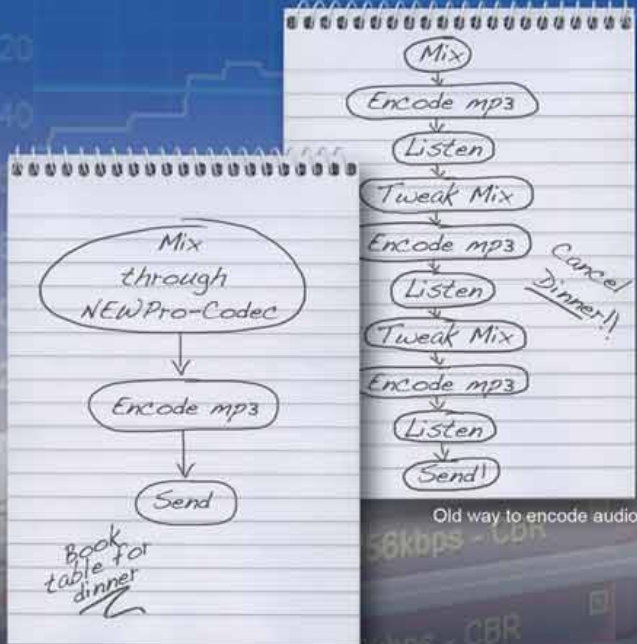 20
40
Mix
Encode mp3
Listen
Tweak Mix
Encode mp3
Listen
Tweak Mix
Encode mp3
Listen
Send!
Cancel
Dinner!!
Mix
through
NEWPro-Codec
Encode mp3
Send
Book
table for
dinner
Old way to encode audio
56kbps - CBR
kbps - CBR